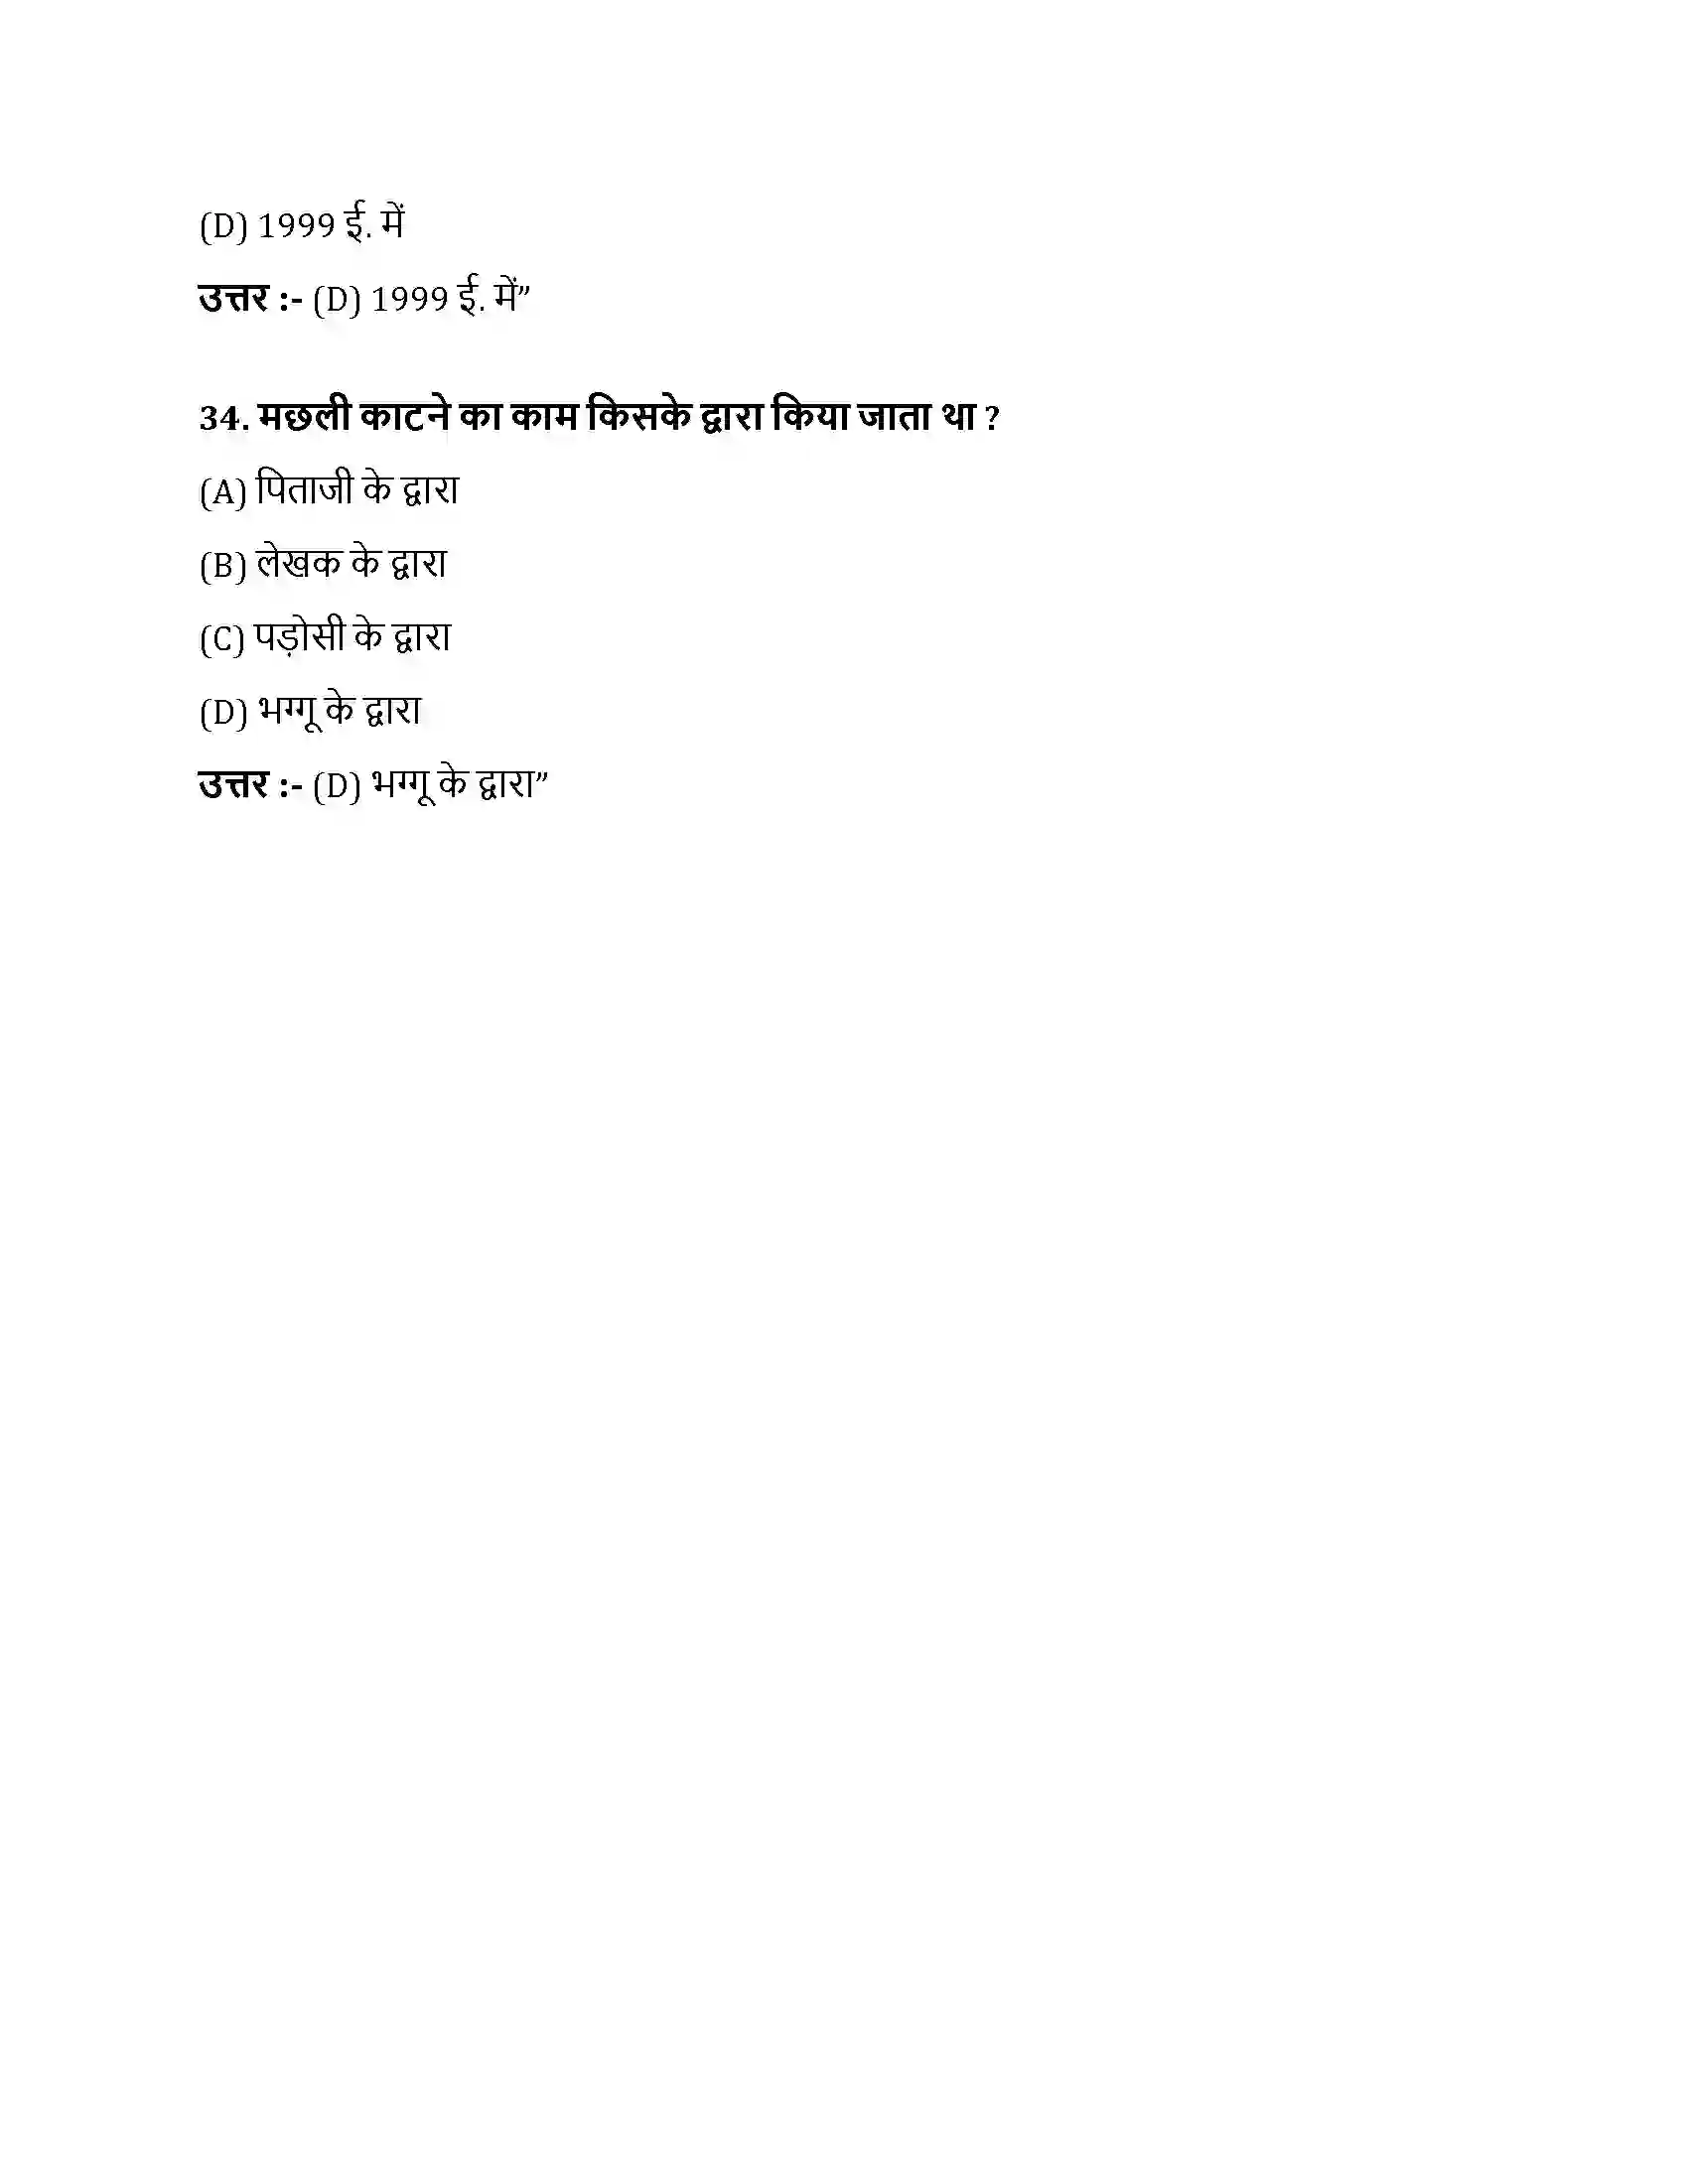 (D) 1999 ई. में
उत्तर :- (D) 1999 ई. में”
34. मछली काटने का काम किसके द्वारा किया जाता था ?
(A) पिताजी के द्वारा
(B) लेखक के द्वारा
(C) पड़ोसी के द्वारा
(D) भग्गू के द्वारा
उत्तर :- (D) भग्गू के द्वारा”